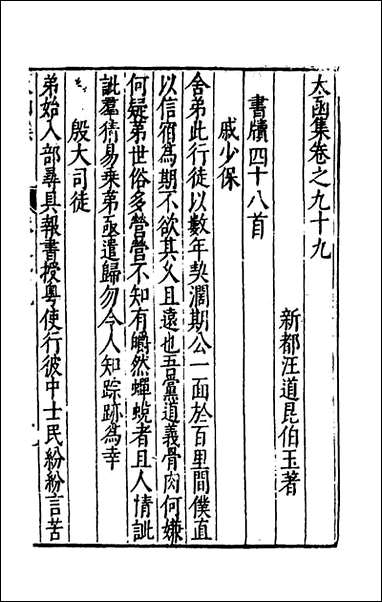 太函集卷之九十九
新都汪道昆伯玉著
書牘四十八首
戚少保
舍弟此行徒以數年契濶期公一面於百里間僕直
以信宿為期不欲其久且遠也吾黨道義骨肉何嫌
何疑第世俗多營營不知有皭然蟬蛻者且人情訿
訿羣猜易乗第亟遣歸勿令人知踪跡為幸
殷大司徒
弟始入部尋具報書授粤使行彼中士民紛紛言苦